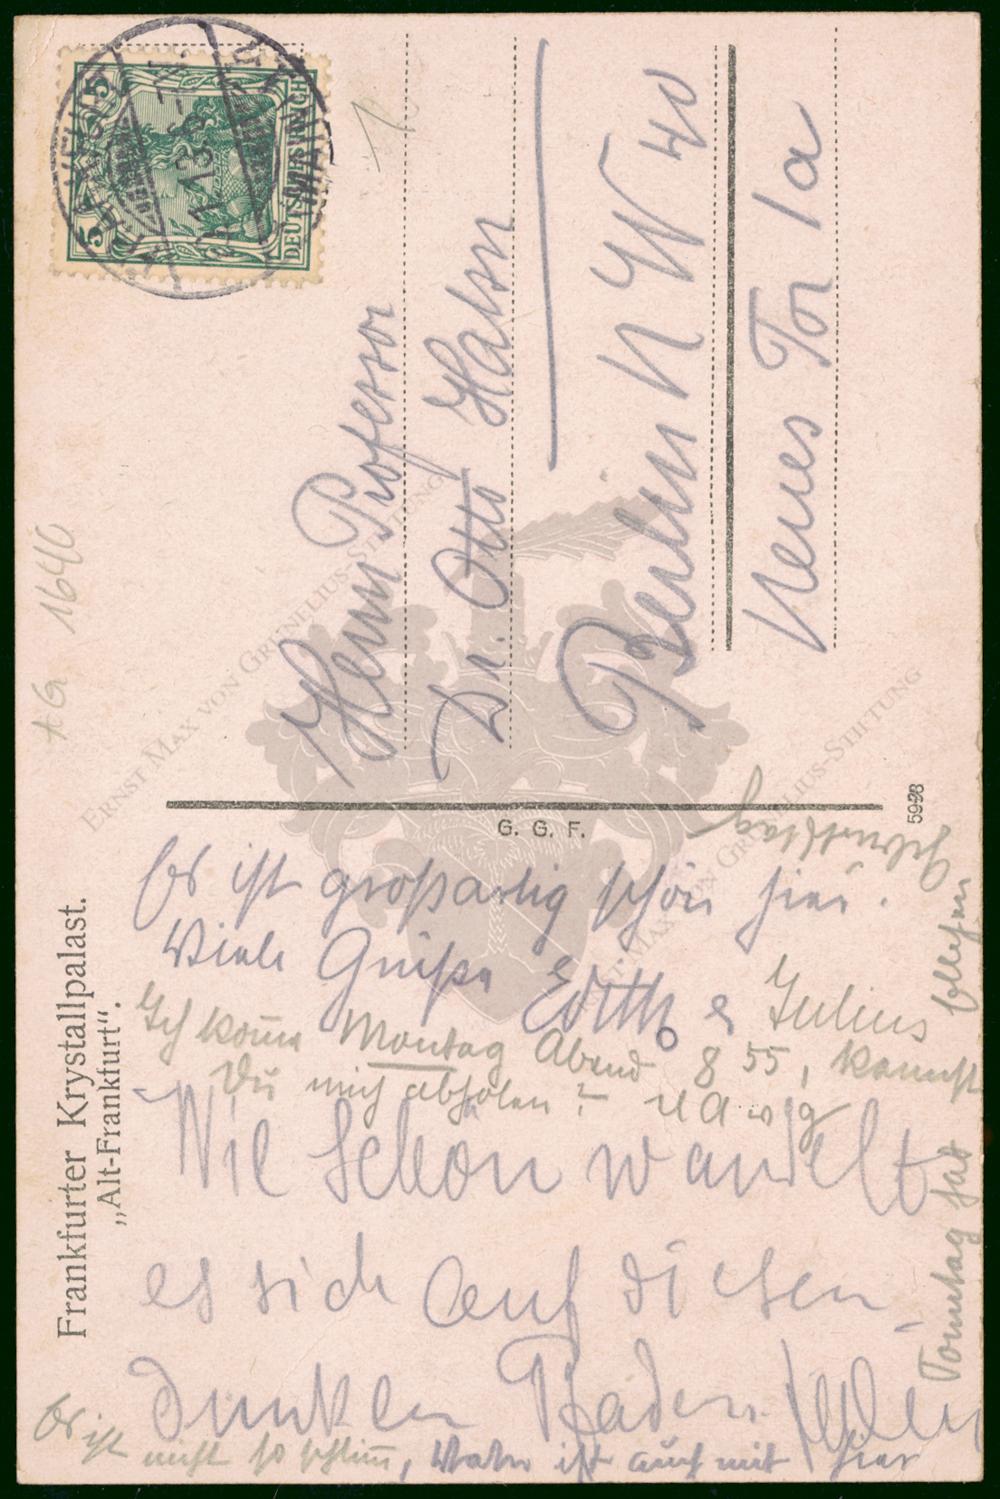 Frankfurter Krystallpalast.
„Alt-Frankfurt“.
DEUTSCHES REICH
5
5
Herrn Professor
Dr. Otto Hahn
Berlin N W 40
Neues Tor 1a
AG 1646
G. G. F.
5998
ERNST MAX VON GRUNELIUS-STIFTUNG
ERNST MAX VON GRUNELIUS-STIFTUNG
Es ist großartig schön hier.
Viele Grüße Edith & Julius
Ich komme Montag Abend 8 55, kannst
Du mich abholen? u A w g
Wie schön wandelt
es sich auf diesen
dunklen Pfaden
Es ist nicht so schlimm, Vater ist auch mit hier
Sonntag hat
Geburtstag